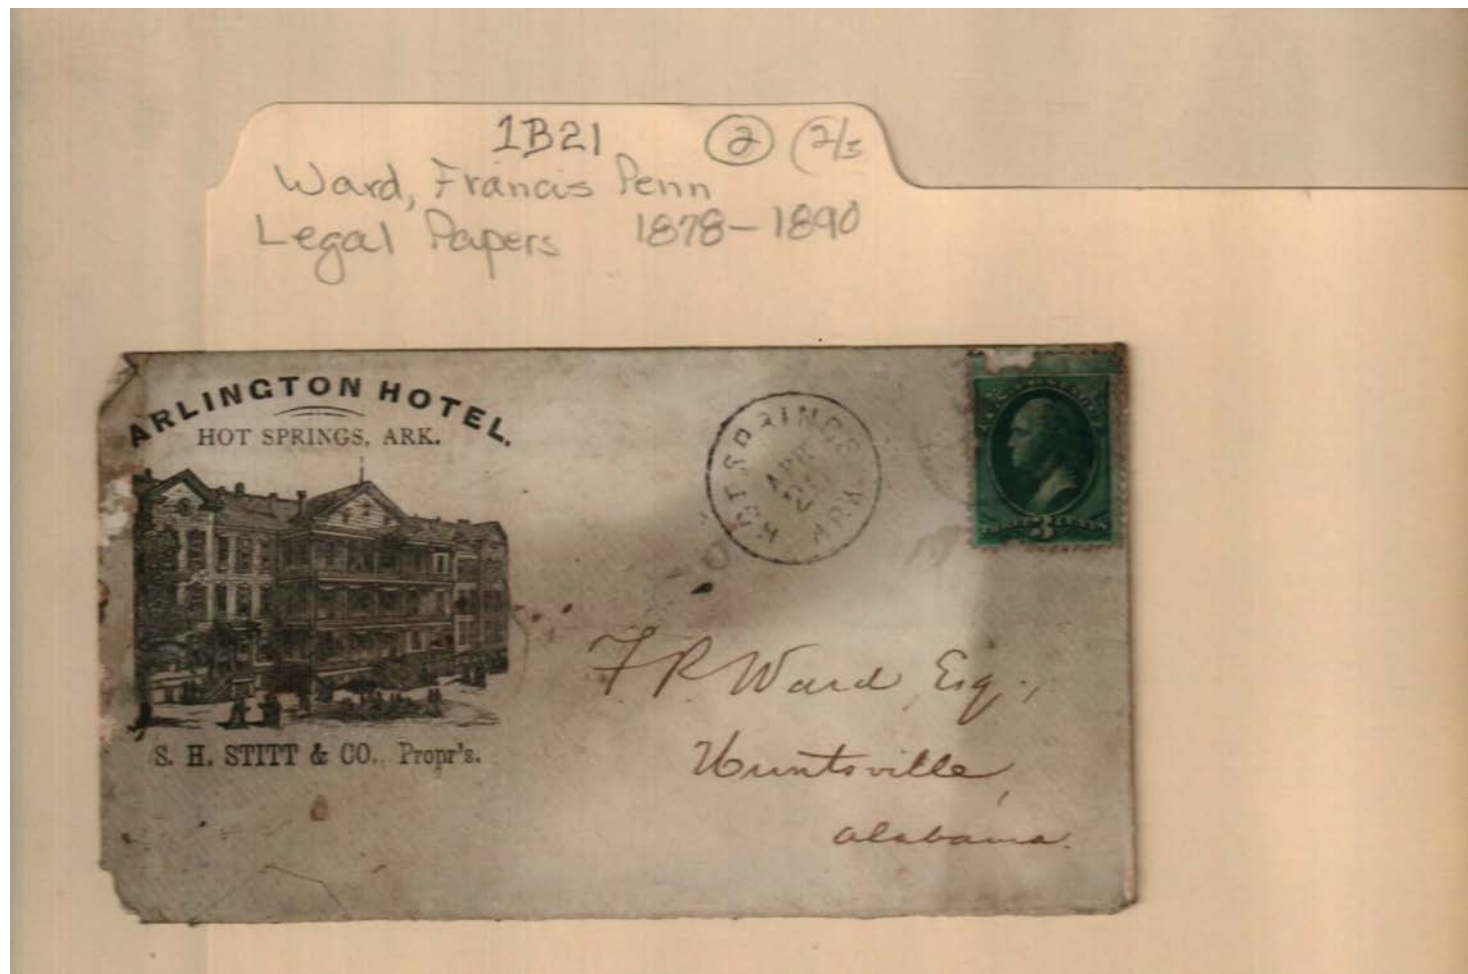 1B21 2 (2/3
Ward, Francis Penn
Legal Papers 1878-1890
ARLINGTON HOTEL.
HOT SPRINGS, ARK.
S. H. STITT & CO., Propr's.
HOT SPRINGS
ARK.
3
F P Ward Esq.,
Huntsville,
Alabama.